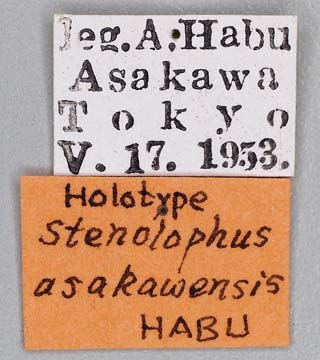 leg. A. Habu
Asakawa
Tokyo
V. 17. 1953.
Holotype
Stenolophus
asakawensis
HABU